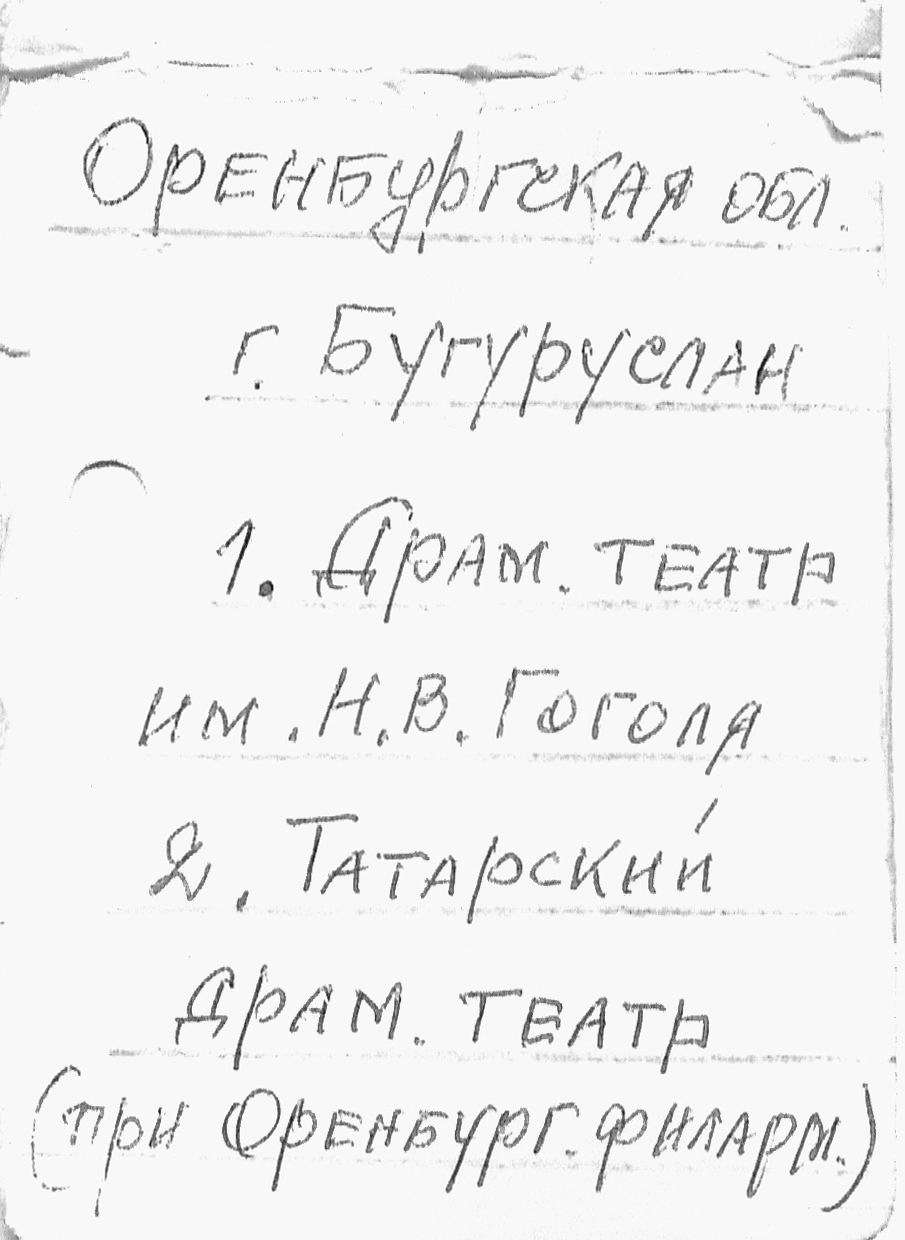 Оренбургская обл.
г. Бугуруслан
1. Драм. театр
им. Н.В. Гоголя
2. Татарский
драм. театр
(при Оренбург. филарм.)